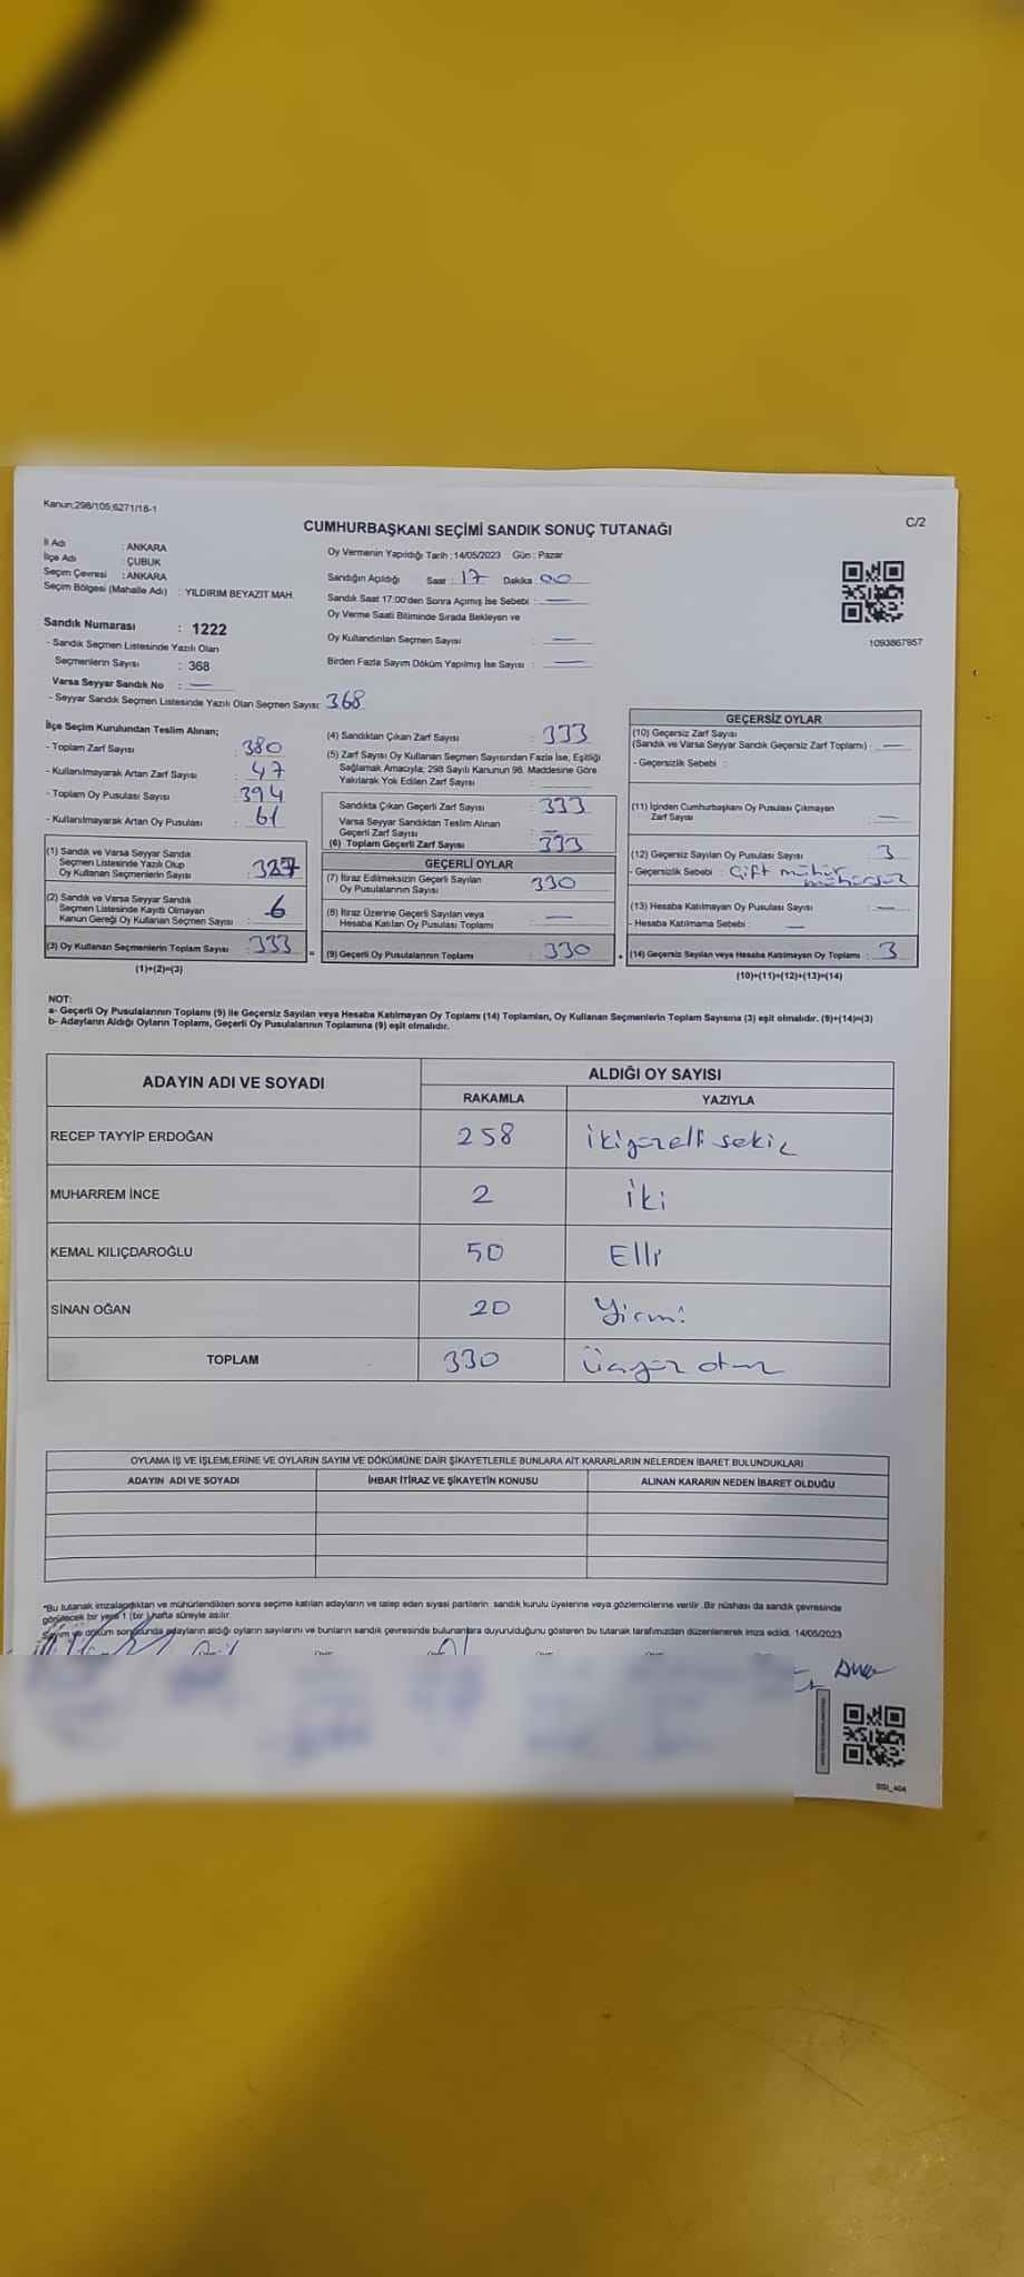 Kanun;298/105;6271/18-1
C/2
CUMHURBAŞKANI SEÇİMİ SANDIK SONUÇ TUTANAĞI
İl Adı : ANKARA
İlçe Adı : ÇUBUK
Seçim Çevresi : ANKARA
Seçim Bölgesi (Mahalle Adı) : YILDIRIM BEYAZIT MAH.
Oy Vermenin Yapıldığı Tarih : 14/05/2023 Gün : Pazar
Sandığın Açıldığı Saat : 17 Dakika : 00
Sandık Saat 17:00'den Sonra Açımış İse Sebebi : —
Oy Verme Saati Bitiminde Sırada Bekleyen ve
Oy Kullandırılan Seçmen Sayısı : —
Birden Fazla Sayım Döküm Yapılmış İse Sayısı : —
1093867957
Sandık Numarası : 1222
- Sandık Seçmen Listesinde Yazılı Olan
Seçmenlerin Sayısı : 368
Varsa Seyyar Sandık No : —
- Seyyar Sandık Seçmen Listesinde Yazılı Olan Seçmen Sayısı: 368
İlçe Seçim Kurulundan Teslim Alınan;
- Toplam Zarf Sayısı : 380
- Kullanılmayarak Artan Zarf Sayısı : 47
- Toplam Oy Pusulası Sayısı : 394
- Kullanılmayarak Artan Oy Pusulası : 61
(1) Sandık ve Varsa Seyyar Sandık
Seçmen Listesinde Yazılı Olup
Oy Kullanan Seçmenlerin Sayısı : 327
(2) Sandık ve Varsa Seyyar Sandık
Seçmen Listesinde Kayıtlı Olmayan
Kanun Gereği Oy Kullanan Seçmen Sayısı : 6
(3) Oy Kullanan Seçmenlerin Toplam Sayısı : 333
(1)+(2)=(3)
(4) Sandıktan Çıkan Zarf Sayısı : 333
(5) Zarf Sayısı Oy Kullanan Seçmen Sayısından Fazla İse, Eşitliği
Sağlamak Amacıyla; 298 Sayılı Kanunun 98. Maddesine Göre
Yakılarak Yok Edilen Zarf Sayısı :
Sandıkta Çıkan Geçerli Zarf Sayısı : 333
Varsa Seyyar Sandıktan Teslim Alınan
Geçerli Zarf Sayısı : —
(6) Toplam Geçerli Zarf Sayısı : 333
GEÇERLİ OYLAR
(7) İtiraz Edilmeksizin Geçerli Sayılan
Oy Pusulalarının Sayısı : 330
(8) İtiraz Üzerine Geçerli Sayılan veya
Hesaba Katılan Oy Pusulası Toplamı : —
(9) Geçerli Oy Pusulalarının Toplamı : 330
GEÇERSİZ OYLAR
(10) Geçersiz Zarf Sayısı
(Sandık ve Varsa Seyyar Sandık Geçersiz Zarf Toplamı) : —
- Geçersizlik Sebebi :
(11) İçinden Cumhurbaşkanı Oy Pusulası Çıkmayan
Zarf Sayısı : —
(12) Geçersiz Sayılan Oy Pusulası Sayısı : 3
- Geçersizlik Sebebi : Çift mühür
mühürsüz
(13) Hesaba Katılmayan Oy Pusulası Sayısı : —
- Hesaba Katılmama Sebebi : —
(14) Geçersiz Sayılan veya Hesaba Katılmayan Oy Toplamı : 3
(10)+(11)+(12)+(13)=(14)
NOT:
a- Geçerli Oy Pusulalarının Toplamı (9) ile Geçersiz Sayılan veya Hesaba Katılmayan Oy Toplamı (14) Toplamları, Oy Kullanan Seçmenlerin Toplam Sayısına (3) eşit olmalıdır. (9)+(14)=(3)
b- Adayların Aldığı Oyların Toplamı, Geçerli Oy Pusulalarının Toplamına (9) eşit olmalıdır.
ADAYIN ADI VE SOYADI ALDIĞI OY SAYISI
RAKAMLA YAZIYLA
RECEP TAYYİP ERDOĞAN 258 ikiyüzelli sekiz
MUHARREM İNCE 2 iki
KEMAL KILIÇDAROĞLU 50 Elli
SİNAN OĞAN 20 Yirmi
TOPLAM 330 üçyüz otuz
OYLAMA İŞ VE İŞLEMLERİNE VE OYLARIN SAYIM VE DÖKÜMÜNE DAİR ŞİKAYETLERLE BUNLARA AİT KARARLARIN NELERDEN İBARET BULUNDUKLARI
ADAYIN ADI VE SOYADI İHBAR İTİRAZ VE ŞİKAYETİN KONUSU ALINAN KARARIN NEDEN İBARET OLDUĞU
*Bu tutanak imzalandıktan ve mühürlendikten sonra seçime katılan adayların ve talep eden siyasi partilerin sandık kurulu üyelerine veya gözlemcilerine verilir. Bir nüshası da sandık çevresinde
görülecek bir yere 1 (bir) hafta süreyle asılır.
Sayım ve döküm sonucunda adayların aldığı oyların sayılarını ve bunların sandık çevresinde bulunanlara duyurulduğunu gösteren bu tutanak tarafımızdan düzenlenerek imza edildi. 14/05/2023